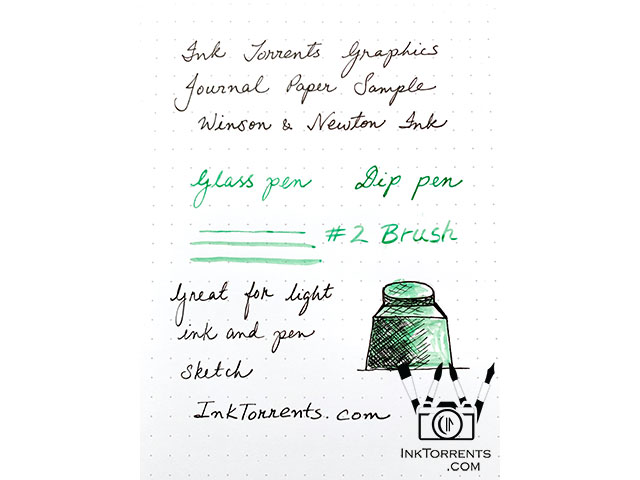 Ink Torrents Graphics
Journal Paper Sample
Winson & Newton Ink
Glass pen Dip pen
#2 Brush
Great for light
ink and pen
sketch
InkTorrents.com
INKTORRENTS
.COM